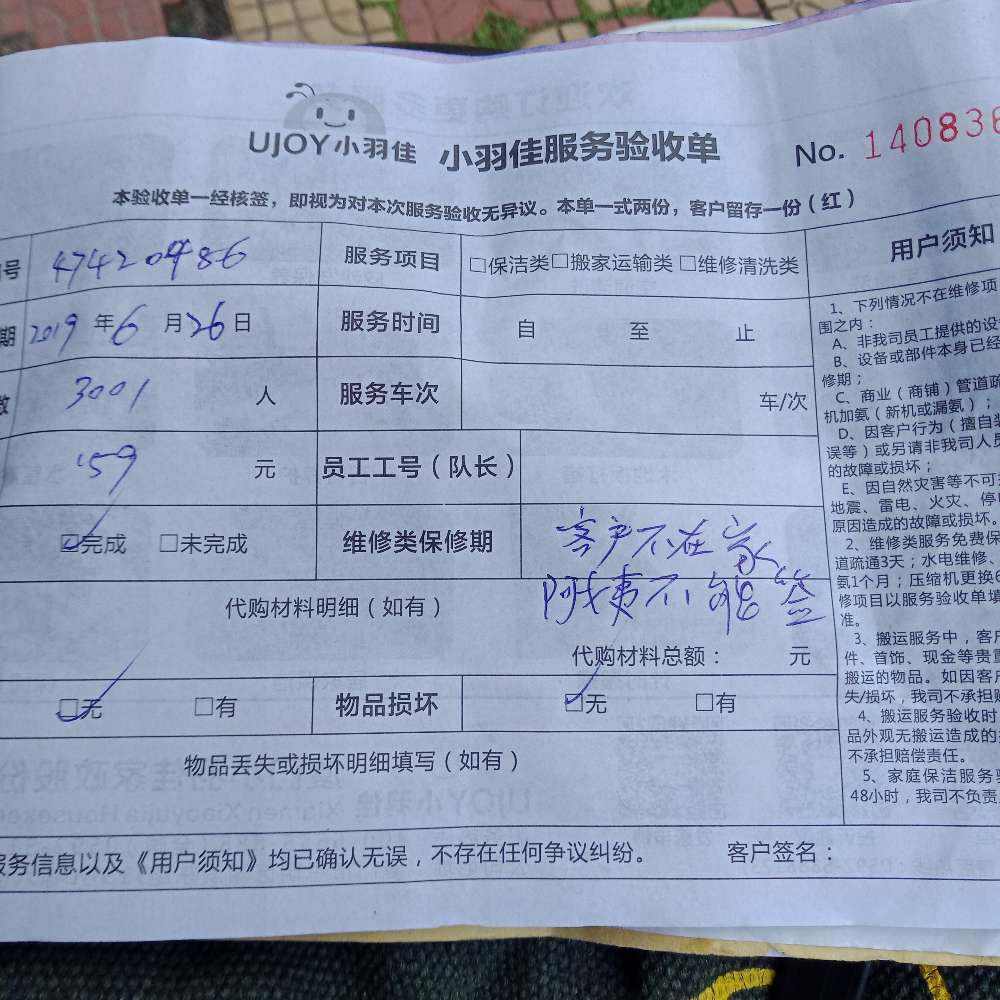 UJOY小羽佳 小羽佳服务验收单 No. 140836
本验收单一经核签，即视为对本次服务验收无异议。本单一式两份，客户留存一份（红）
号 474209486 服务项目 □保洁类□搬家运输类 □维修清洗类
期 2019 年 6 月 26 日 服务时间 自 至 止
数 3001 人 服务车次 车/次
159 元 员工工号（队长）
☑完成 □未完成 维修类保修期 客户不在家
阿姨不能签
代购材料明细（如有）
代购材料总额： 元
☑无 □有 物品损坏 ☑无 □有
物品丢失或损坏明细填写（如有）
服务信息以及《用户须知》均已确认无误，不存在任何争议纠纷。 客户签名：
用户须知
1、下列情况不在维修项
围之内：
A、非我司员工提供的设
B、设备或部件本身已经
修期；
C、商业（商铺）管道疏
机加氨（新机或漏氨）；
D、因客户行为（擅自装
误等）或另请非我司人员
的故障或损坏；
E、因自然灾害等不可
地震、雷电、火灾、停
原因造成的故障或损坏。
2、维修类服务免费保
道疏通3天；水电维修、
氨1个月；压缩机更换6
修项目以服务验收单填
准。
3、搬运服务中，客户
件、首饰、现金等贵重
搬运的物品。如因客户
失/损坏，我司不承担
4、搬运服务验收时
品外观无搬运造成的
不承担赔偿责任。
5、家庭保洁服务
48小时，我司不负责